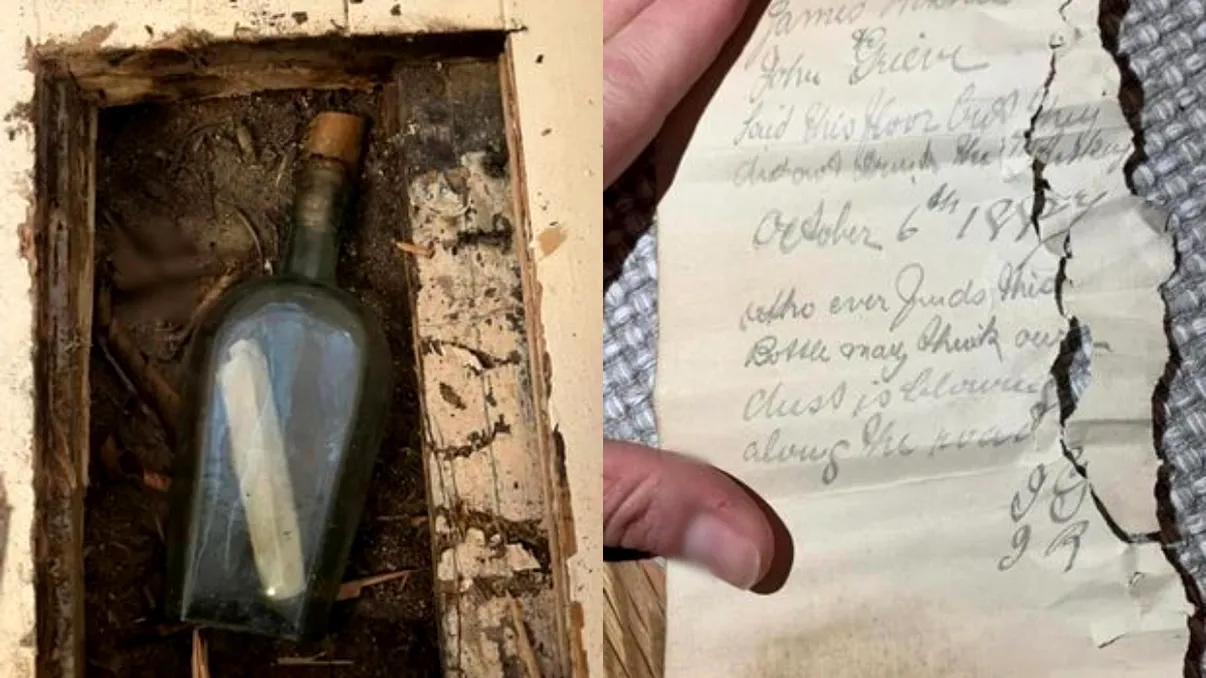 James
John Grieve
laid this floor but they
did not drink the whisky
October 6th 1887
who ever finds this
Bottle may think our
dust is blowing
along the road
JG
JR